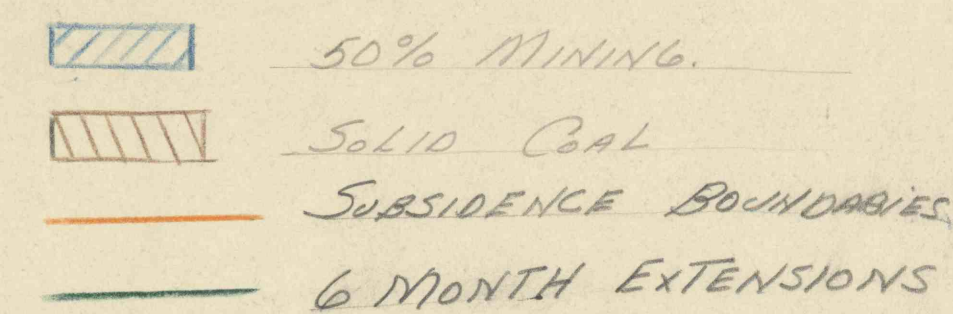 50% MINING.
SOLID COAL
SUBSIDENCE BOUNDARIES
6 MONTH EXTENSIONS